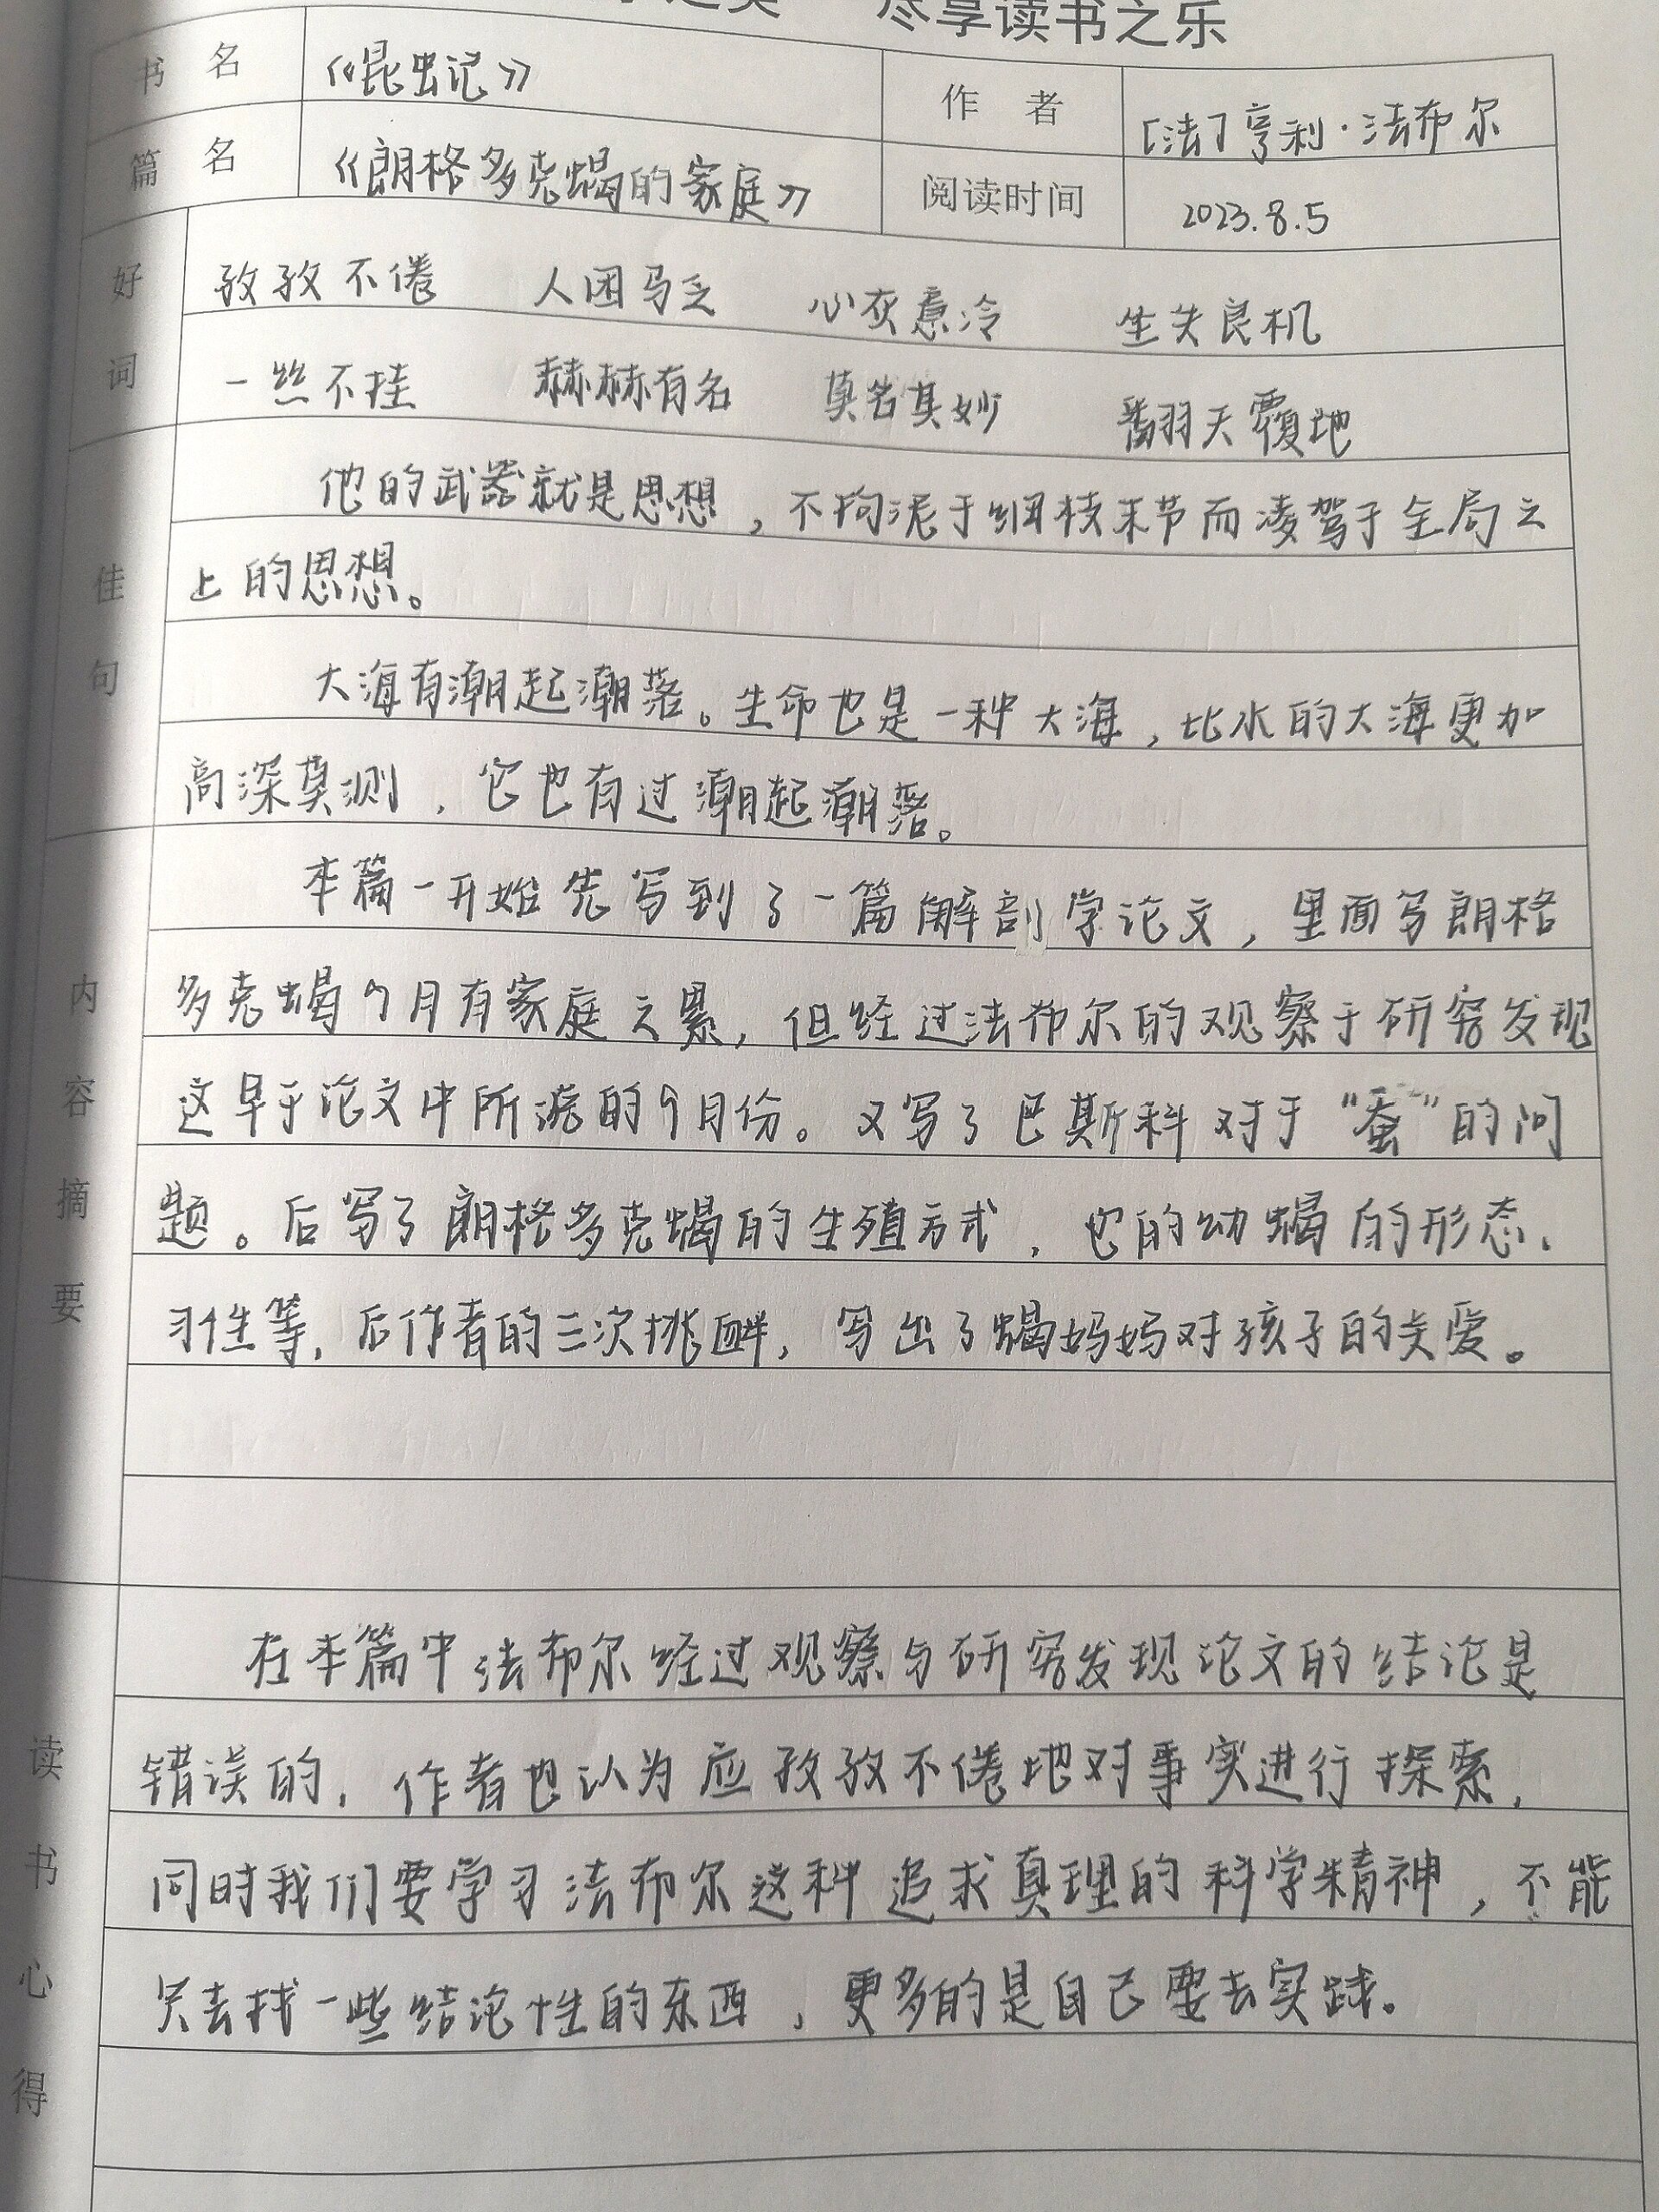 尽享读书之乐
书名 《昆虫记》 作者 [法]亨利·法布尔
篇名 《朗格多克蝎的家庭》 阅读时间 2023.8.5
好词
孜孜不倦 人困马乏 心灰意冷 坐失良机
一丝不挂 赫赫有名 莫名其妙 翻天覆地
佳句
他的武器就是思想，不拘泥于细枝末节而凌驾于全局之
上的思想。
大海有潮起潮落。生命也是一种大海，比水的大海更加
高深莫测，它也有过潮起潮落。
内容摘要
本篇一开始先写到了一篇解剖学论文，里面写朗格
多克蝎9月有家庭之累，但经过法布尔的观察于研究发现
这早于论文中所说的9月份。又写了巴斯科对于“蚕”的问
题。后写了朗格多克蝎的生殖方式，它的幼蝎的形态、
习性等，后作者的三次挑衅，写出了蝎妈妈对孩子的关爱。
读书心得
在本篇中法布尔经过观察与研究发现论文的结论是
错误的，作者也认为应孜孜不倦地对事实进行探索，
同时我们要学习法布尔这种追求真理的科学精神，不能
只去找一些结论性的东西，更多的是自己要去实践。